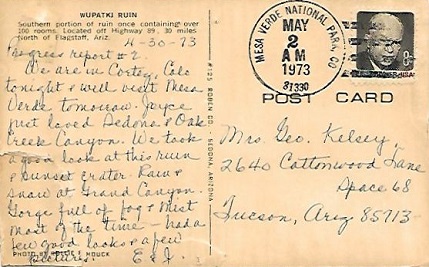 WUPATKI RUIN
Southern portion of ruin once containing over
100 rooms. Located off Highway 89, 30 miles
north of Flagstaff, Ariz.
4-30-73
Progress report #2
We are in Cortez, Colo
tonight & will visit Mesa
Verde tomorrow. Joyce
just loved Sedona & Oak
Creek Canyon. We took
a good look at this ruin
& Sunset Crater. Rain &
snow at Grand Canyon.
Gorge full of fog & mist
most of the time - had a
few good looks & a few
pictures. E & J.
PHOTO BY HOUCK
SEDONA, ARIZONA
MESA VERDE NATIONAL PARK, CO
MAY
2
AM
1973
81330
8¢
USA
POST CARD
Mrs Geo. Kelsey
2640 Cottonwood Lane
Space 68
Tucson, Ariz 85713